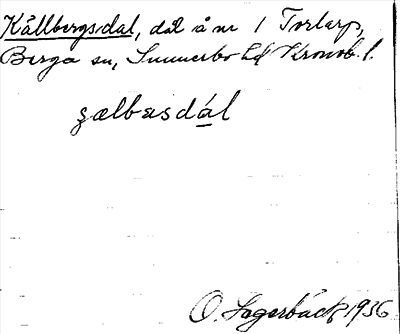 Källbergsdal, dal å nr 1 Torlarp,
Berga sn, Sunnerbo hd Kronob. l.
ʒælbæsdál
O. Lagerbäck 1936